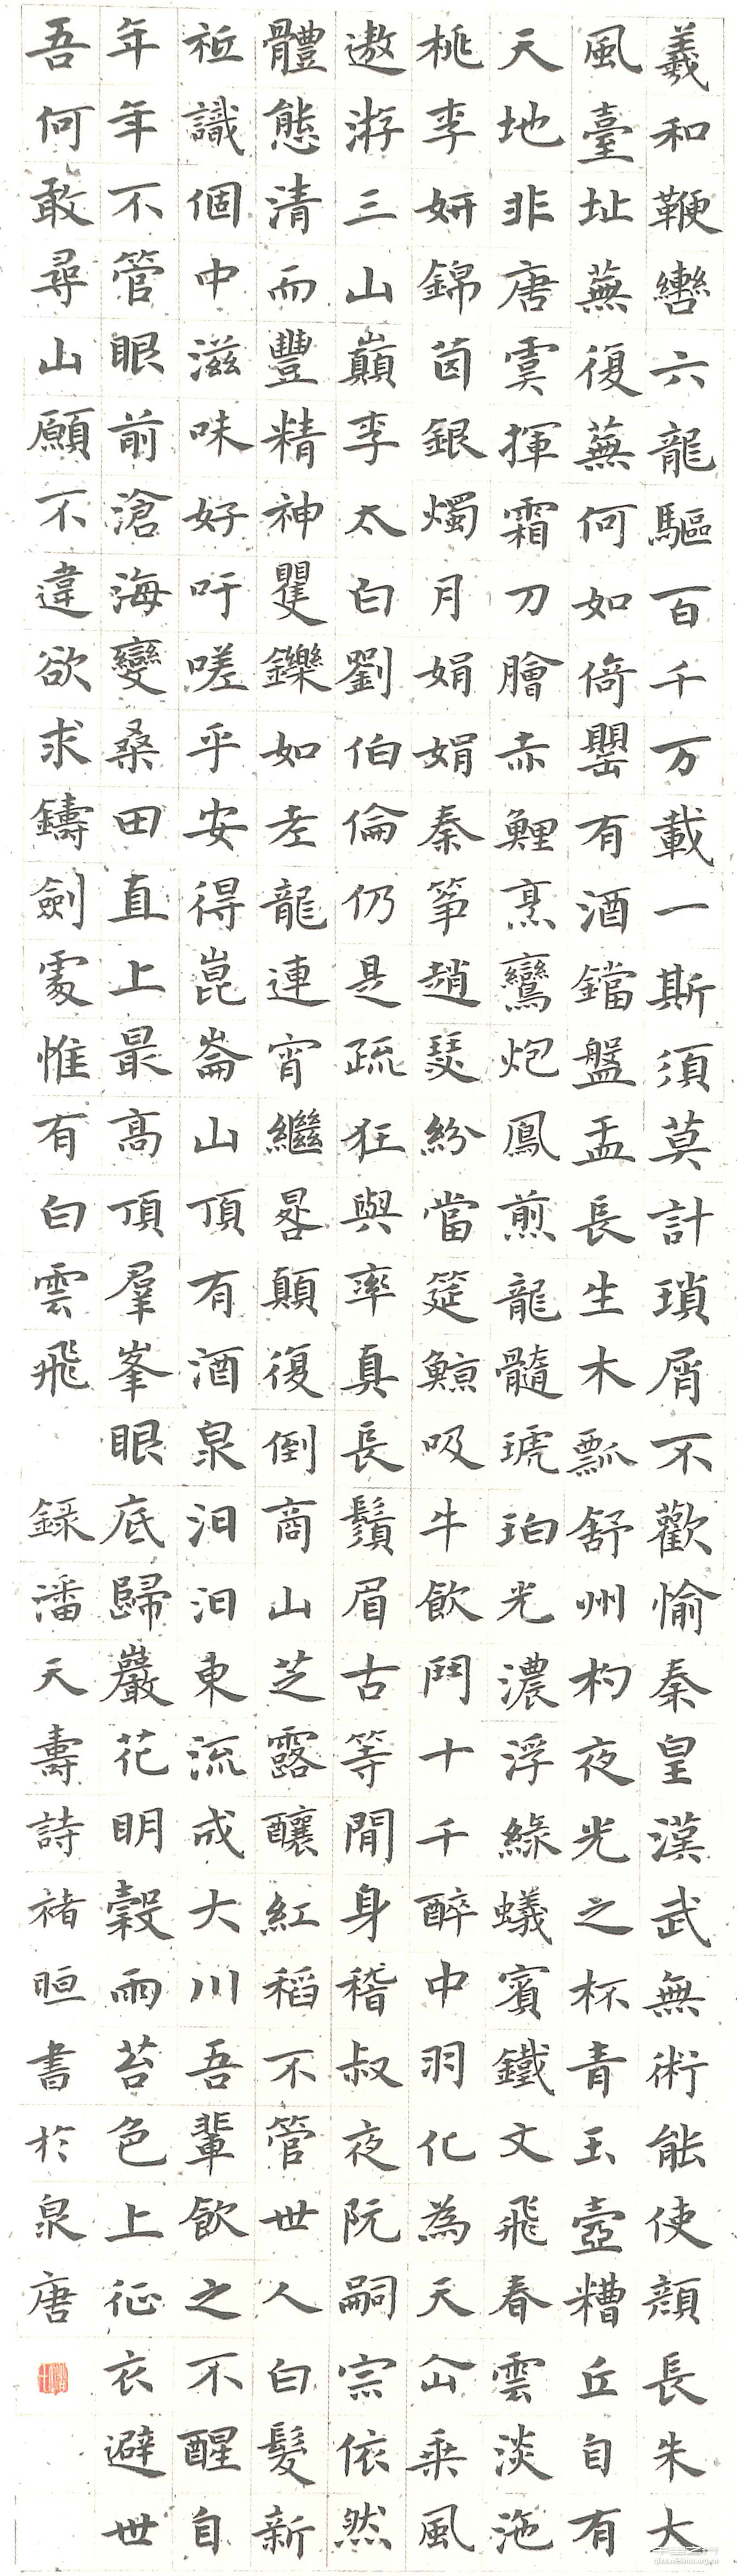 羲和鞭轡六龍驅百千万載一斯須莫計瑣屑不歡愉秦皇漢武無術能使顏長朱大
風臺址蕪復蕪何如倚罌有酒鐺盤盂長生木瓢舒州杓夜光之杯青玉壺糟丘自有
天地非唐虞揮霜刀膾赤鯉烹鸞炮鳳煎龍髓琥珀光濃浮綠蟻賓鐵文飛春雲淡沲
桃李妍錦茵銀燭月娟娟秦箏趙瑟紛當筵鯨吸牛飲鬥十千醉中羽化為天仚乘風
遨游三山巔李太白劉伯倫仍是疏狂與率真長鬚眉古等閒身稽叔夜阮嗣宗依然
體態清而豐精神矍鑠如老龍連宵繼晷顛復倒商山芝露釀紅稻不管世人白髮新
祇識個中滋味好吁嗟乎安得崑崙山頂有酒泉汩汩東流成大川吾輩飲之不醒自
年年不管眼前滄海變桑田直上最高頂羣峯眼底歸巖花明穀雨苔色上征衣避世
吾何敢尋山願不違欲求鑄劍處惟有白雲飛 錄潘天壽詩褚晅書於泉唐